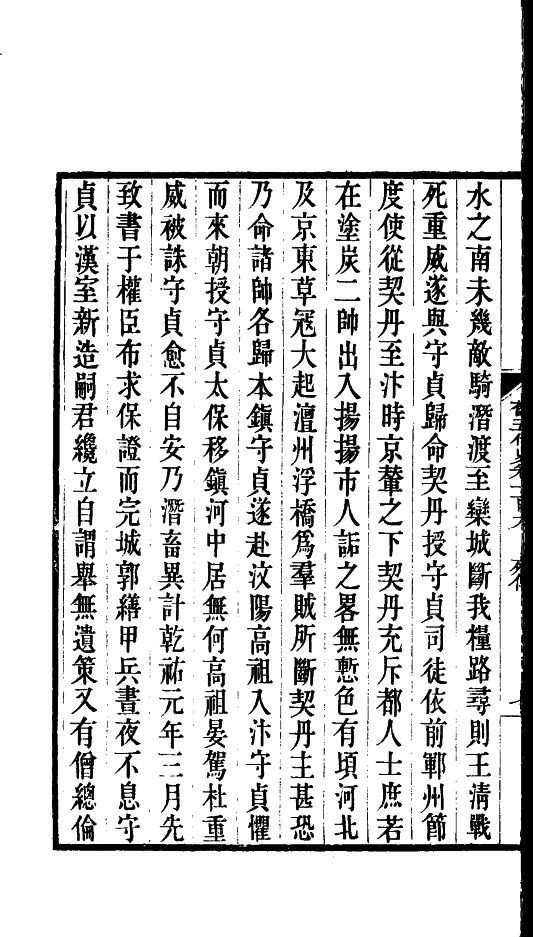 水之南未幾敵騎潛渡至欒城斷我糧路尋則王清戰
死重威遂與守貞歸命契丹授守貞司徒依前鄆州節
度使從契丹至汴時京輦之下契丹充斥都人士庶若
在塗炭二帥出入揚揚市人詬之畧無慙色有頃河北
及京東草寇大起澶州浮橋爲羣賊所斷契丹主甚恐
乃命諸帥各歸本鎮守貞遂赴汶陽高祖入汴守貞懼
而來朝授守貞太保移鎮河中居無何高祖晏駕杜重
威被誅守貞愈不自安乃潛畜異計乾祐元年三月先
致書于權臣布求保證而完城郭繕甲兵晝夜不息守
貞以漢室新造嗣君纔立自謂舉無遺策又有僧總倫